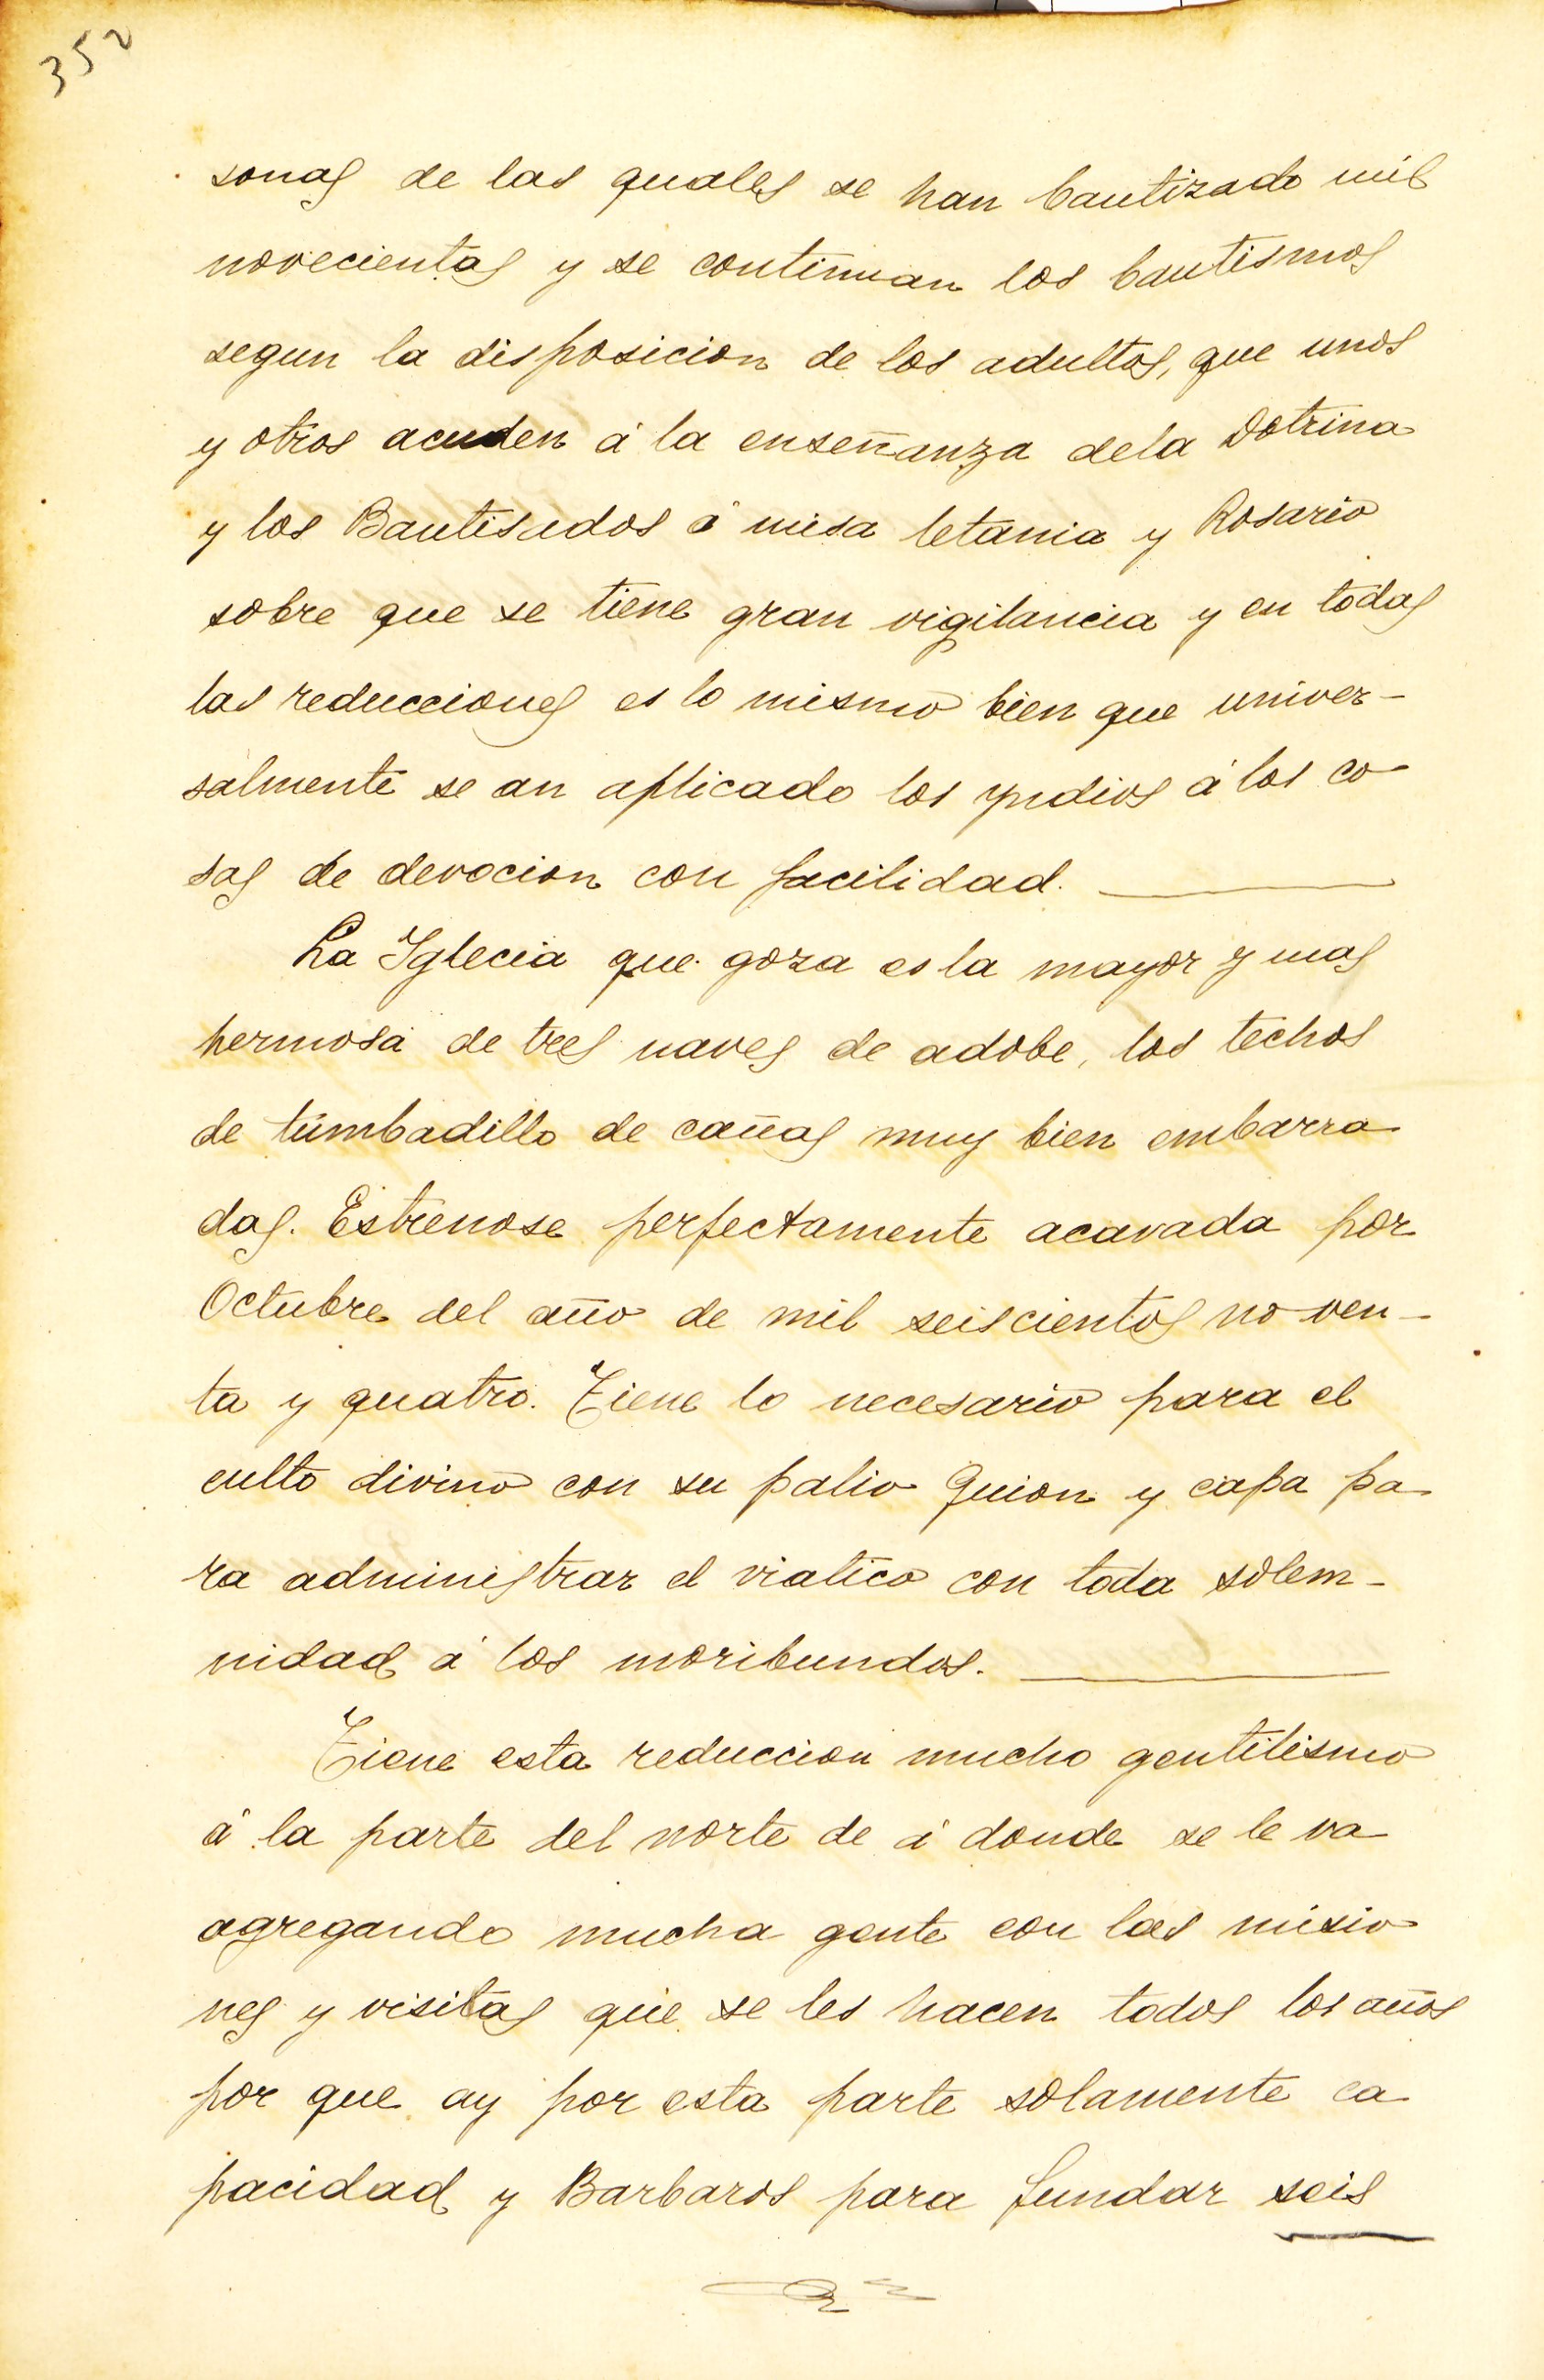 352
sonas de las quales se han bautizado mil
novecientas y se continuan los bautismos
segun la disposicion de los adultos, que unos
y otros acuden á la enseñanza dela Dotrina
y los Bautisados á misa letania y Rosario
sobre que se tiene gran vigilancia y en todas
las reducciones es lo mismo bien que univer-
salmente se an aplicado los yndios á los co
sas de devocion con facilidad.
La Iglecia que goza es la mayor y mas
hermosa de tres naves de adobe, los techos
de tumbadillo de cañas muy bien embarra
das. Estrenose perfectamente acavada por
Octubre del año de mil seiscientos noven-
ta y quatro. Tiene lo necesario para el
culto divino con su palio Guion y capa pa
ra administrar el viatico con toda solem-
nidad á los moribundos.
Tiene esta reduccion mucho gentilismo
á la parte del norte de á donde se le va
agregando mucha gente con las misio
nes y visitas que se les hacen todos los años
por que ay por esta parte solamente ca
pacidad y Barbaros para fundar seis